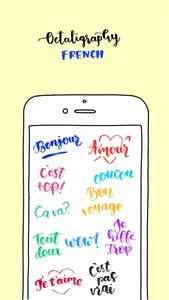 Octaligraphy
FRENCH
Bonjour
Amour
C'est
top!
coucou
Bon
voyage
Ca va?
Je
kiffe
trop
Tout
doux
wow!
Je t'aime
C'est
pas
vrai